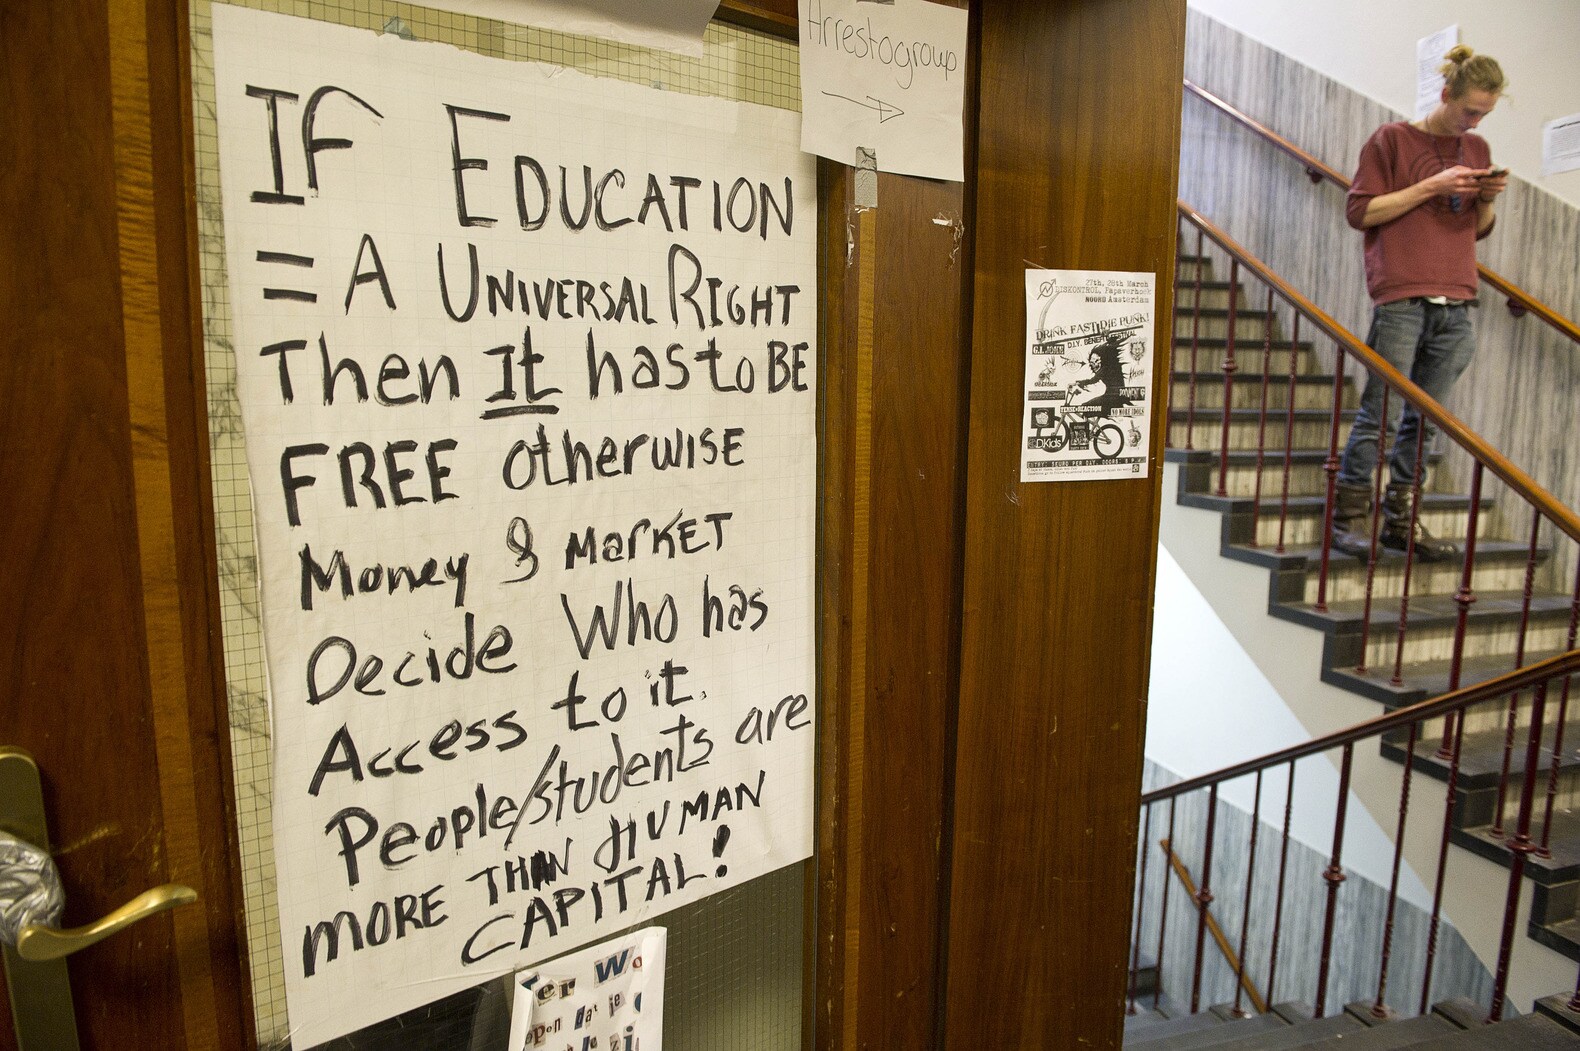 IF EDUCATION
= A UNIVERSAL RIGHT
Then It has to BE
FREE otherwise
Money & MarKET
Decide Who has
Access to it.
People/students are
MORE THAN HUMAN
CAPITAL!
Arrestogroup
27th, 28th March
DISKONTROL, Papaverhoek
NOORD Amsterdam
DRINK FAST DIE PUNK!
D.I.Y. BENEFIT FESTIVAL
FENSE REACTION
NO MORE IDOLS
D.Kids
er Wo
open dat je